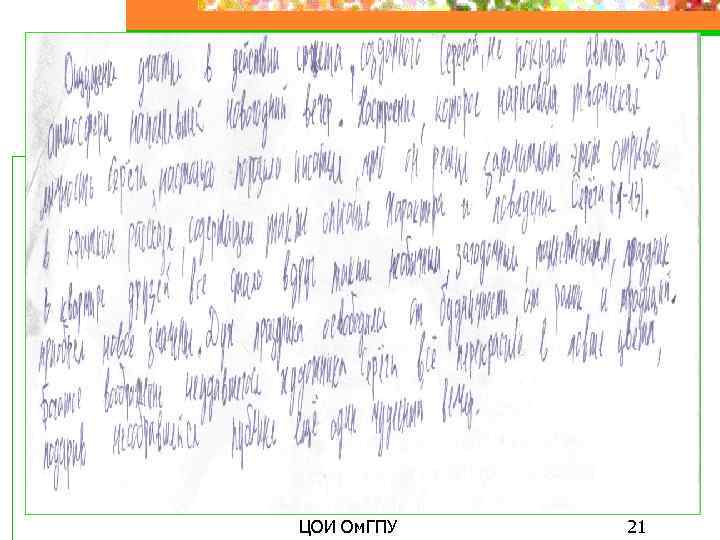 Ощущение участия в действии сюжета, созданного Серёгой, не покидало автора из-за
атмосферы наполнявшей новогодний вечер. Настроение, которое нарисовала творческая
личность Серёги, настолько поразило писателя, что он решил запечатлеть этот отрывок
в кратком рассказе, содержащем также описание характера и поведения Серёги (9-13).
в квартире друзей всё стало вдруг таким необычным, загадочным, таинственным, праздник
приобрёл новое значение. Дух праздника освободился от будничности от рамок и традиций.
богатое воображение неудавшегося художника Серёги всё перекрасило в новые цвета,
подарив необравшейся публике ещё один чудесный вечер.
ЦОИ Ом.ГПУ 21